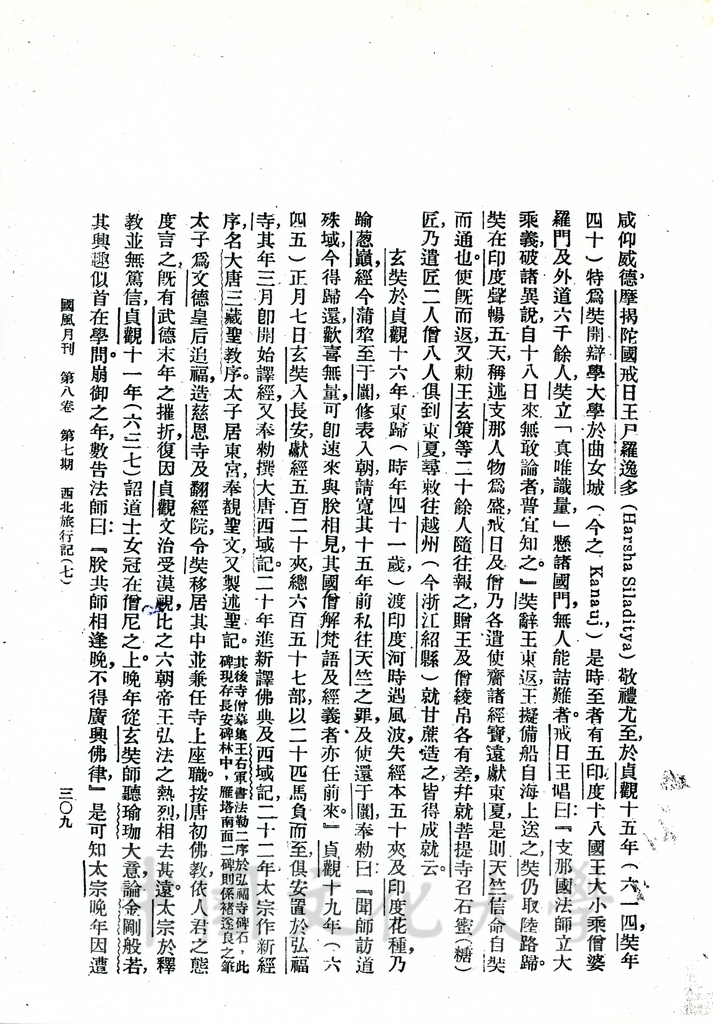 咸仰威德，摩揭陀國戒日王尸羅逸多(Harsha Siladitya)敬禮尤至，於貞觀十五年(六一四，奘年
四十)特爲奘開辯學大學於曲女城(今之 Kanauj,)是時至者有五印度十八國王大小乘僧婆
羅門及外道六千餘人，奘立「真唯識量，」懸諸國門，無人能詰難者。戒日王唱曰：『支那國法師立大
乘義，破諸異說，自十八日來無敢論者，普宜知之。』奘辭王東返，王擬備船自海上送之，奘仍取陸路歸。
奘在印度，聲暢五天，稱述支那人物爲盛，戒日及僧乃各遣使齎諸經寶，遠獻東夏，是則天竺信命自奘
而通也。使旣而返，又勅王玄策等二十餘人隨往報之，贈王及僧綾帛各有差，幷就菩提寺召石蜜(糖)
匠，乃遣匠二人僧八人俱到東夏，尋敕往越州(今浙江紹縣)就甘蔗造之，皆得成就云。
玄奘於貞觀十六年東歸(時年四十一歲)渡印度河時遇風波，失經本五十夾及印度花種，乃
踰葱巔，經今蒲犂，至于闐修表入朝，請寬其十五年前私往天竺之罪，及使還于闐奉勅曰：『聞師訪道
殊域，今得歸還，歡喜無量，可卽速來與朕相見，其國僧解梵語及經義者，亦任前來。』貞觀十九年(六
四五)正月七日玄奘入長安，獻經五百二十夾，總六百五十七部，以二十匹馬負而至，俱安置於弘福
寺，其年三月卽開始譯經，又奉勅撰大唐西域記。二十年進新譯佛典及西域記，二十二年太宗作新經
序，名大唐三藏聖教序。太子居東宮，奉覩聖文，又製述聖記。其後寺僧慕集王右軍書法勒二序於弘福寺碑石，此
碑現存長安碑林中，雁塔南面二碑則係褚遂良之筆
太子爲文德皇后追福，造慈恩寺及翻經院，令奘移居其中並兼任寺上座職。按唐初佛教依人君之態
度言之，旣有武德末年之摧折，復因貞觀文治受漠視，比之六朝帝王弘法之熱烈，相去甚遠。太宗於釋
教並無篤信，貞觀十一年(六三七)詔道士女冠在僧尼之上。晚年從玄奘師聽瑜珈大意，論金剛般若，
其興趣似首在學問。崩御之年，數告法師曰：『朕共師相逢晚，不得廣興佛律』是可知太宗晚年因遭
國風月刊　第八卷　第七期　西北旅行記(七)
三〇九
中國文化大學